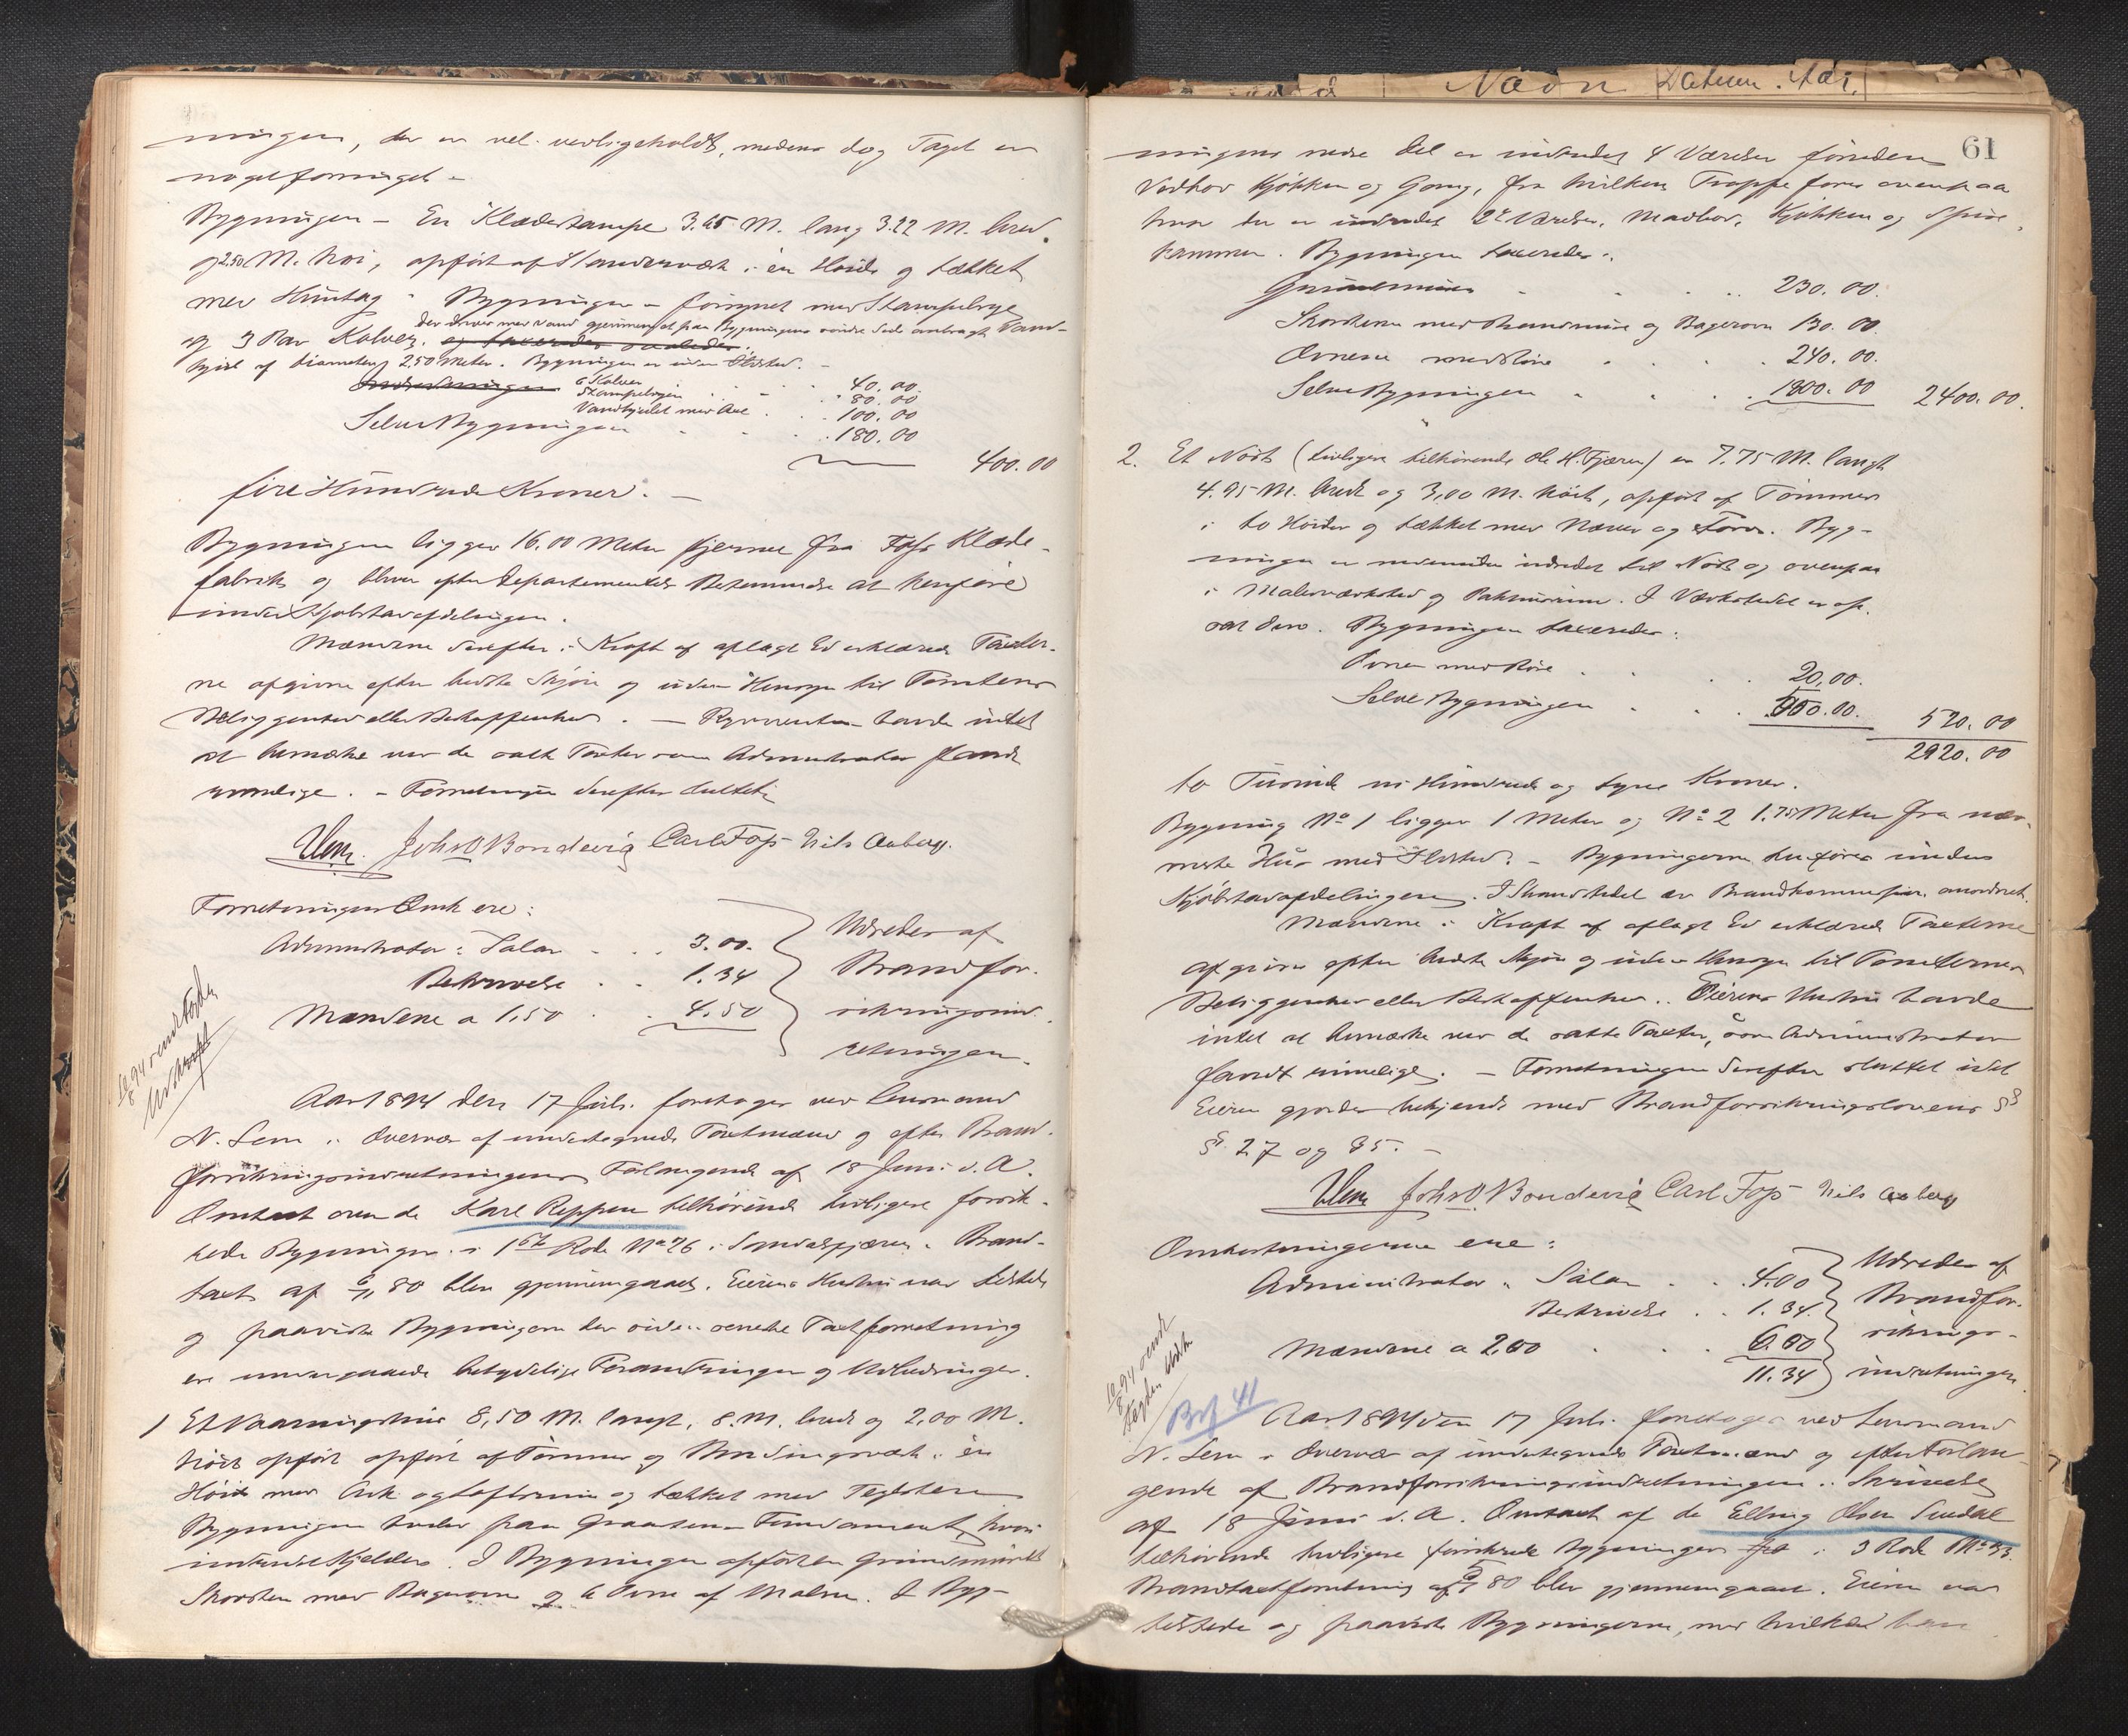 ningen, der er vel vedligeholdt, medens dog Taget er
noget forringet.
Bygningen – En Klædestampe 3.65 M. lang 3.22 M. bred
og 2.50 M. høi, opført af Standerværk i en Høide og tækket
med Huntag. Bygningen – forsynet med Stampebryg
der drives med Vand gjennem et paa Bygningens søndre Side anbragt Vand-
og 3 Par Kolver. og taxeredes saaledes:
hjul af Diameter 2,50 Meter. Bygningen er uden Ildsted.
Indredningen 6 Kolver . . 40.00
Stampebrygen . . 80.00
Vandhjulet med Axe . . 100.00
Selve Bygningen . . 180.00
400.00
fire Hundrede Kroner. –
Bygningen ligger 16.00 Meter fjernet fra Fop's Klæde-
fabrik og bliver efter Departementets Bestemmelse at henføre
under Kjøbstadafdelingen.
Mændene derefter i Kraft af aflagt Ed erklærede Taxter-
ne afgivne efter bedste Skjøn og uden Hensyn til Tomtens
Beliggenhed eller Beskaffenhed. – Rekvirenten havde intet
at bemærke ved de satte Taxter som Administrator fandt
rimelige. – Forretningen derefter sluttet.
Lem. Johs O Bondevig Carl Fop Nils Aaberg.
Forretningens Omk ere:
Administrator: Salær . . . 3.00.
Beskrivelse . . 1.34
Mændene a 1,50 . . 4.50
Udredes af
Brandfor-
sikringsind-
retningen.
10/8 94 sendt Fogden
Udskrift
Aar 1894 den 17 Juli foretoges ved Lensmand
N. Lem i Overvær af undertegnede Taxtmænd og efter Brand-
forsikringsindretningens Forlangende af 18 Juni d. A.
Omtaxt over de Karl Reppen tilhørende tidligere forsik-
rede Bygninger i 1ste Rode No 26 i Sogndalsfjæren. Brand-
taxt af 9/9 80 blev gjennemgaaet. Eierens Hustru var tilstede
og paaviste Bygningerne der siden seneste Taxtforretning
ere undergaaede betydelige Forandringer og Udbedringer.
1 Et Vaaningshus 8,50 M. langt, 8.M. bredt og 2,00 M.
høit opført opført af Tømmer og Bindingsværk i en
Høide med Ark og Loftsrum og tækket med Teglsten
Bygningen hviler paa Graastens Fundament, hvori
indredet Kjelder. I Bygningen opført en Grundmuret
Skorsten med Bagerovn og 6 Ovne af Malm. I Byg-
Navn Datum
61
ningens nedre Del er indredet 4 Værelser foruden
Vedbod Kjøkken og Gang, fra hvilken Trappe fører ovenpaa
hvor der er indredet 2 Værelser, Madbod, Kjøkken og Spise-
kammer. Bygningen taxeredes:
Grundmuren . . . 230.00.
Skorstenen med Brandmure og Bagerovn 130.00.
Ovnene med Røre . . . 240.00.
Selve Bygningen . . . 1800.00 2400.00.
2. Et Nøst (tidligere tilhørende Ole H. Fjæren) er 7.75 M. langt
4.95 M. bredt og 3,00 M. høit, opført af Tømmer
i to Høider og tækket med Næver og Torv. Byg-
ningen er nedenunder indredet til Nøst og ovenpaa
i Malerværksted og Pakhusrum. I Værkstedet er op-
sat Ovn. Bygningen taxeredes:
Ovnen med Røre . . . 20,00.
Selve Bygningen . . . 500.00. 520.00
2920.00
to Tusinde ni Hundrede og tyve Kroner.
Bygning No 1 ligger 1 Meter og No 2 1.75 Meter fra nær-
meste Hus med Ildsted. – Bygningerne henføres under
Kjøbstadafdelingen. I Strandstedet er Brandkommission anordnet.
Mændene i Kraft af aflagt Ed erklærede Taxterne
afgivne efter bedste Skjøn og uden Hensyn til Tomternes
Beliggenhed eller Beskaffenhed. Eierens Hustru havde
intet at bemærke ved de satte Taxter, som Administrator
fandt rimelige. – Forretningen derefter sluttet idet
Eieren gjordes bekjendt med Brandforsikringslovens §§
§§ 27 og 35. –
Lem Johs O Bondevig Carl Fop Nils Aaberg
Omkostningerne ere:
Administrator: Salær . . 4.00
Beskrivelse . . 1.34.
Mændene a 2.00 . . . 6.00
11.34
Udredes af
Brandfor-
sikrings-
indretningen.
10/8 94 sendt
Fogden Udsk.
Brf 41
Aar 1894 den 17 Juli foretoges ved Lensmand
N. Lem i Overvær af undertegnede Taxtmænd og efter Forlan-
gende af Brandforsikringsindretningen i Skrivelse
af 18 Juni d. A. Omtaxt af de Elling Olsen Suedal
tilhørende tidligere forsikrede Bygninger i 3 Rode No 33.
Brandtaxtforretning af 9/9 80 blev gjennemgaaet. Eieren var
tilstede og paaviste Bygningerne, med hvilke han